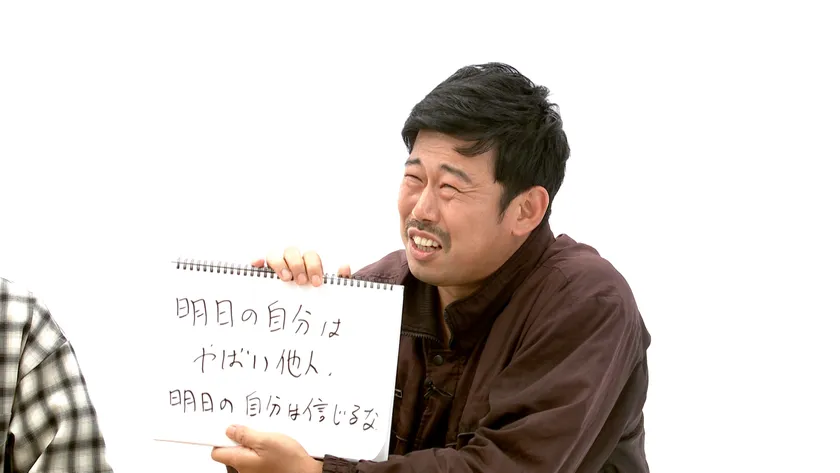 明日の自分は
やばい他人.
明日の自分は信じるな